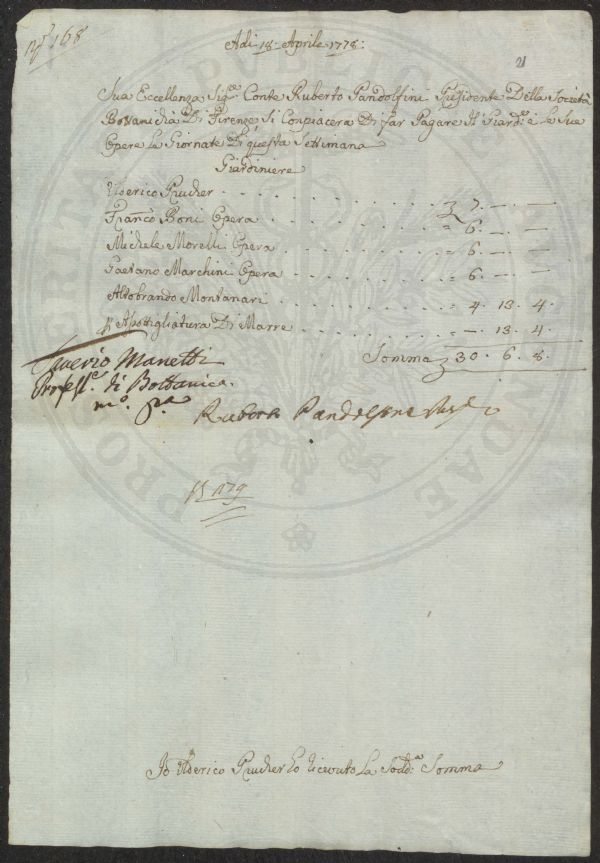 N.° 168
Adi 18 Aprile 1778:
21
Sua Eccellenza Sig.e Conte Ruberto Pandolfini Presidente Della Società
Bottanicha Di Firenze Si Conpiacera Di far Pagare Il Giard.e e le Sue
Opere Le Giornate Di questa Settimana
Giardiniere
Ulderico Prucher . . . . . . . . . £ 7. — . —
Franco Boni Opera . . . . . . . . = 6. — . —
Michele Morelli Opera . . . . . . = 6. — . —
Gaetano Marchini Opera . . . . . . = 6. — . —
Altobrando Montanari . . . . . . . = 4. 13. 4.
p. Apottigliatura Di Marre . . . . . = —. 13. 4.
Somma £ 30. 6. 8.
Saverio Manetti
Profess.e di Bottanica.
m.o p.a
Ruberto Pandolfini
Io Ulderico Prucher ho ricevuto La Sod.a Somma
PUBLICAE
PROSPERITATI